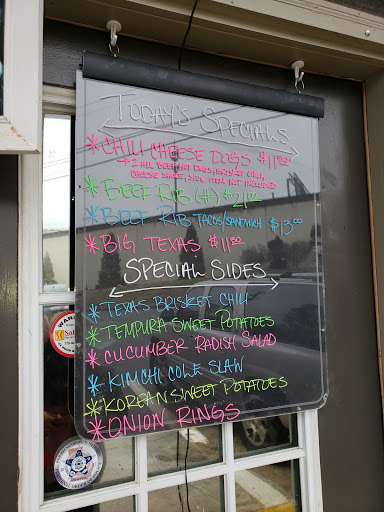 TODAY'S SPECIALS
*CHILI CHEESE DOGS $11.50
→ 2 ALL BEEF HOT DOGS, BRISKET CHILI,
CHEESE SAUCE, SIDE ITEM NOT INCLUDED
*BEEF RIB (#) $21.00
*BEEF RIB TACOS/SANDWICH $13.00
*BIG TEXAS $11.50
SPECIAL SIDES
*TEXAS BRISKET CHILI
*TEMPURA SWEET POTATOES
*CUCUMBER RADISH SALAD
*KIMCHI COLE SLAW
*KOREAN SWEET POTATOES
*ONION RINGS